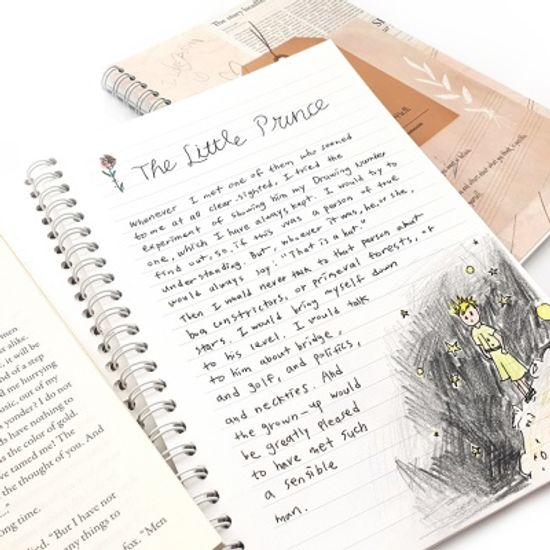 The story
The Little Prince
Whenever I met one of them who seemed
to me at all clear-sighted, I tried the
experiment of showing him my Drawing Number
one, which I have always kept. I would try to
find out, so, if this was a person of true
understanding. But, whoever it was, he, or she,
would always say: "That is a hat."
Then I would never talk to that person about
boa constrictors, or primeval forests, or
stars. I would bring myself down
to his level. I would talk
to him about bridge,
and golf, and politics,
and neckties. And
the grown-up would
be greatly pleased
to have met such
a sensible
man.
men
alike.
, it will be
nd of a step
nd me hurrying
usic, out of my
yonder? I do not
ds have nothing to
s the color of gold.
ve tamed me! The
the thought of you. And
..."
ong time.
ied. "But I have not
any things to
fox. "Men